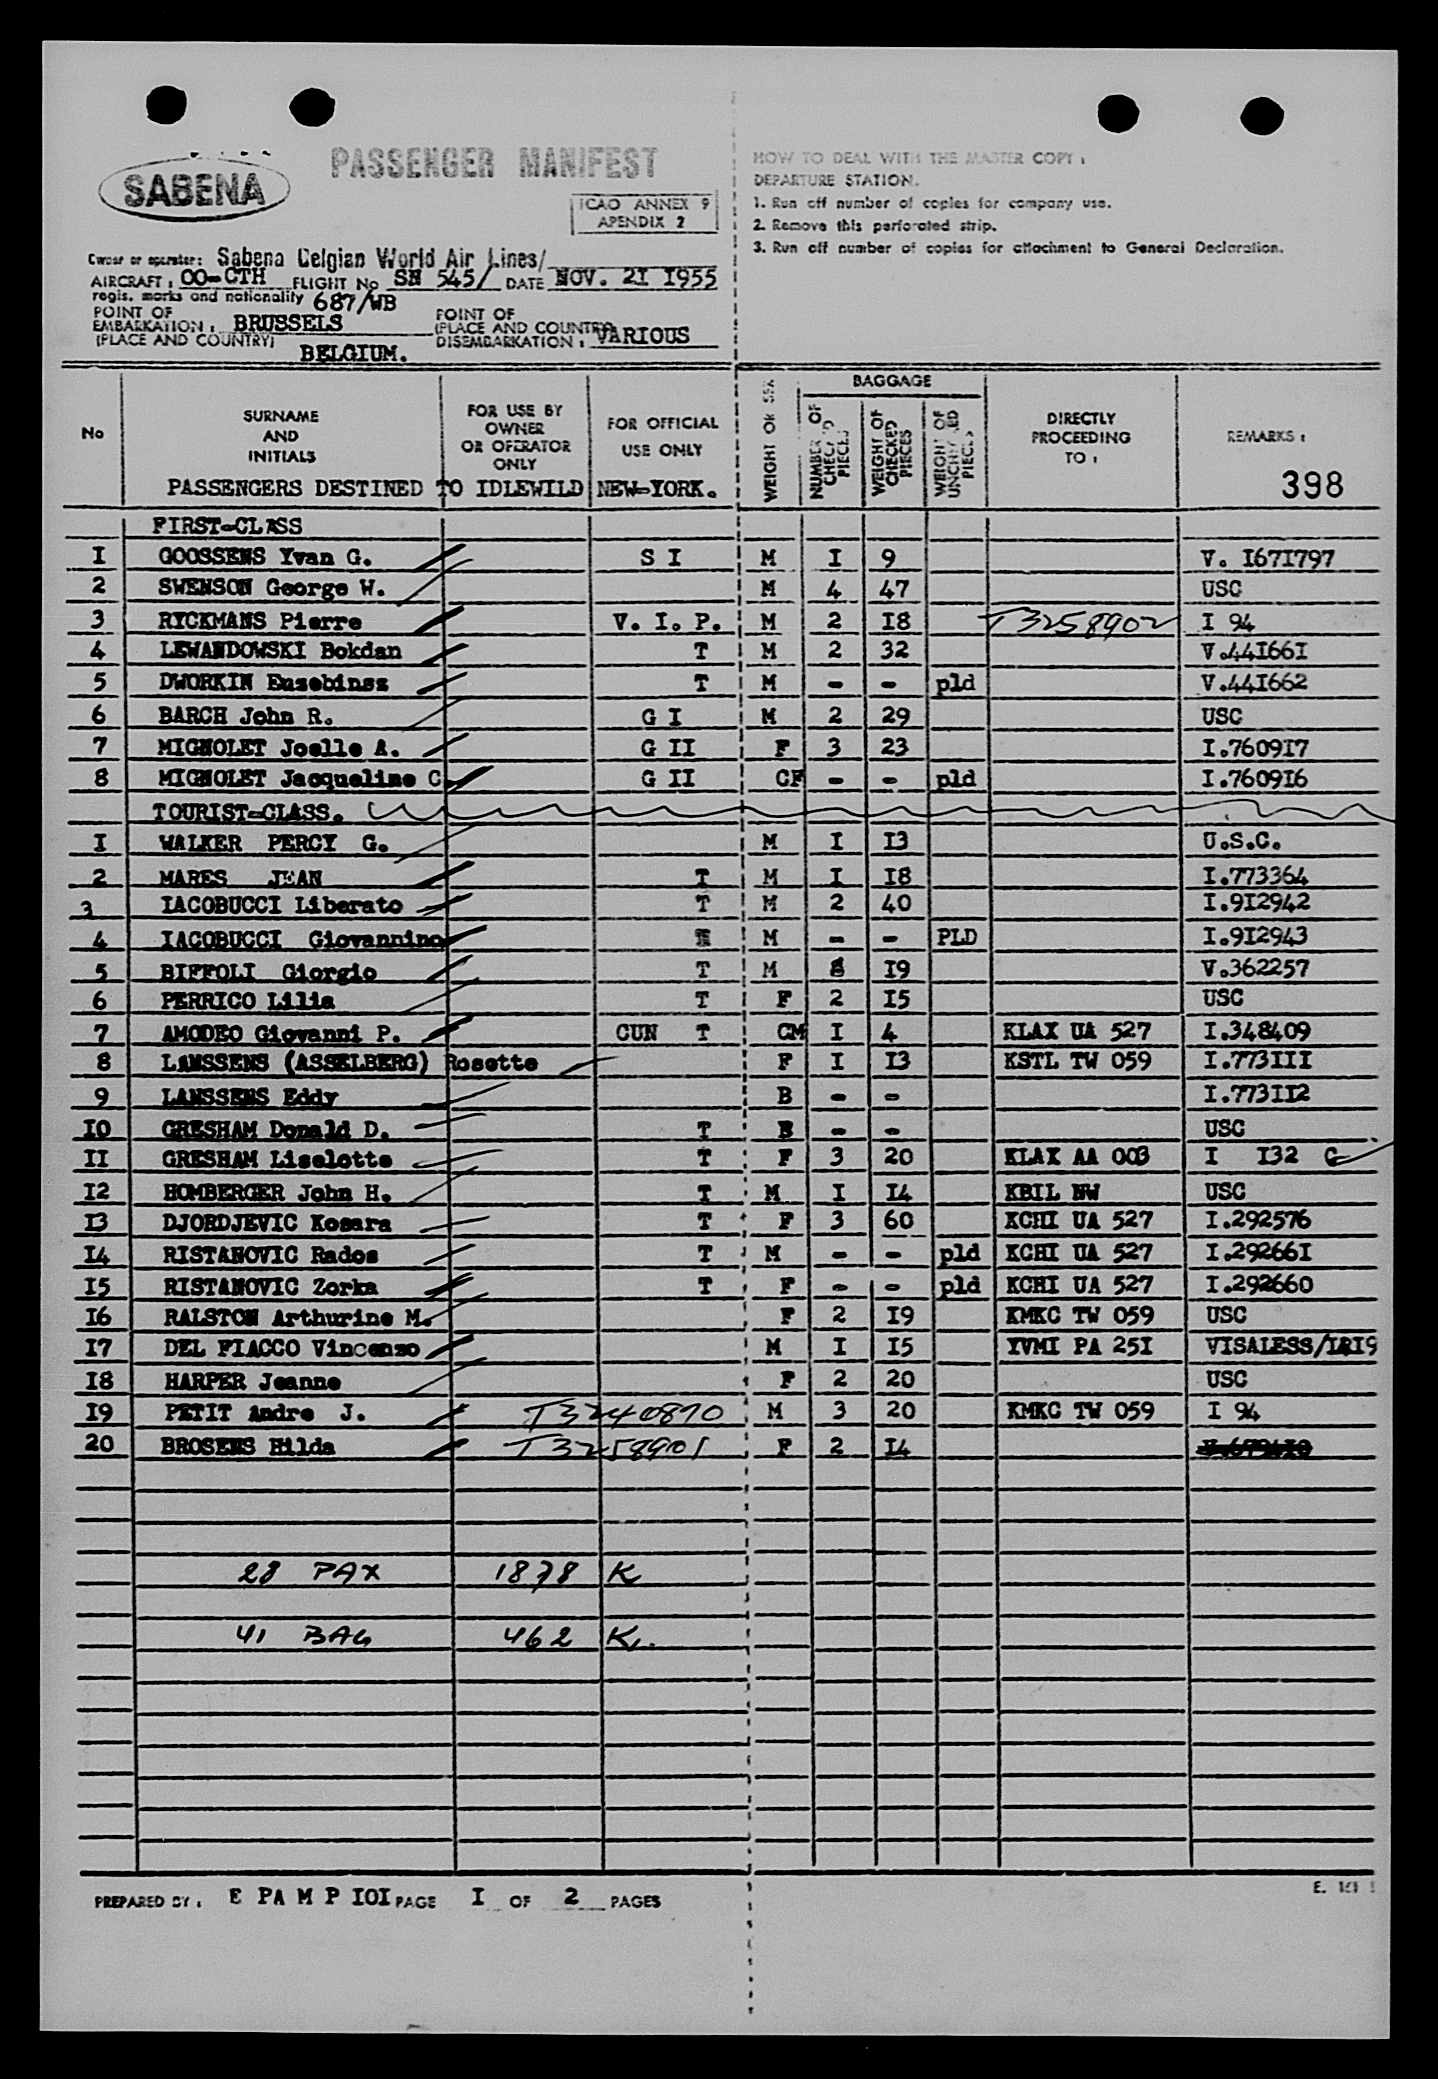 SABENA
PASSENGER MANIFEST
ICAO ANNEX 9
APENDIX 2
HOW TO DEAL WITH THE MASTER COPY :
DEPARTURE STATION.
1. Run off number of copies for company use.
2. Remove this perforated strip.
3. Run off number of copies for attachment to General Declaration.
Owner or operator: Sabena Belgian World Air Lines/
AIRCRAFT : OO-CTH FLIGHT No SN 545/ DATE NOV. 2I I955
regis. marks and nationality 687/WB
POINT OF EMBARKATION : BRUSSELS
(PLACE AND COUNTRY) BELGIUM.
POINT OF
(PLACE AND COUNTRY)
DISEMBARKATION : VARIOUS
No
SURNAME AND INITIALS
FOR USE BY OWNER OR OPERATOR ONLY
FOR OFFICIAL USE ONLY
WEIGHT OR SEX
BAGGAGE
NUMBER OF CHECKED PIECES
WEIGHT OF CHECKED PIECES
WEIGHT OF UNCHECKED PIECES
DIRECTLY PROCEEDING TO :
REMARKS :
398
PASSENGERS DESTINED TO IDLEWILD NEW-YORK.
FIRST-CLASS
I GOOSSENS Yvan G. S I M I 9 V. I67I797
2 SWENSON George W. M 4 47 USC
3 RYCKMANS Pierre V. I. P. M 2 I8 T3258902 I 94
4 LEWANDOWSKI Bokdan T M 2 32 V.44I66I
5 DWORKIN Eusebinsz T M - - pld V.44I662
6 BARCH John R. G I M 2 29 USC
7 MIGNOLET Joelle A. G II F 3 23 I.7609I7
8 MIGNOLET Jacqueline C G II CF - - pld I.7609I6
TOURIST-CLASS.
I WALKER PERCY G. M I I3 U.S.C.
2 MARES JEAN T M I I8 I.773364
3 IACOBUCCI Liberato T M 2 40 I.9I2942
4 IACOBUCCI Giovannino M - - PLD I.9I2943
5 BIFFOLI Giorgio T M I9 V.362257
6 PERRICO Lilia T F 2 I5 USC
7 AMODEO Giovanni P. CUN T CM I 4 KLAX UA 527 I.348409
8 LANSSENS (ASSELBERG) Rosette F I I3 KSTL TW 059 I.773III
9 LANSSENS Eddy B - - I.773II2
IO GRESHAM Donald D. T B - - USC
II GRESHAM Liselotte T F 3 20 KLAX AA 003 I I32 C
I2 HOMBERGER John H. T M I I4 KBIL NW USC
I3 DJORDJEVIC Kosara T F 3 60 KCHI UA 527 I.292576
I4 RISTANOVIC Rados T M - - pld KCHI UA 527 I.29266I
I5 RISTANOVIC Zorka T F - - pld KCHI UA 527 I.292660
I6 RALSTON Arthurine M. F 2 I9 KMKC TW 059 USC
I7 DEL FIACCO Vincenzo M I I5 YVMI PA 25I VISALESS/
I8 HARPER Jeanne F 2 20 USC
I9 PETIT Andre J. T3240870 M 3 20 KMKC TW 059 I 94
20 BROSENS Hilda T3258901 F 2 I4
28 PAX 1878 K
41 BAG 462 K.
PREPARED BY : E PA M P IOI PAGE I OF 2 PAGES